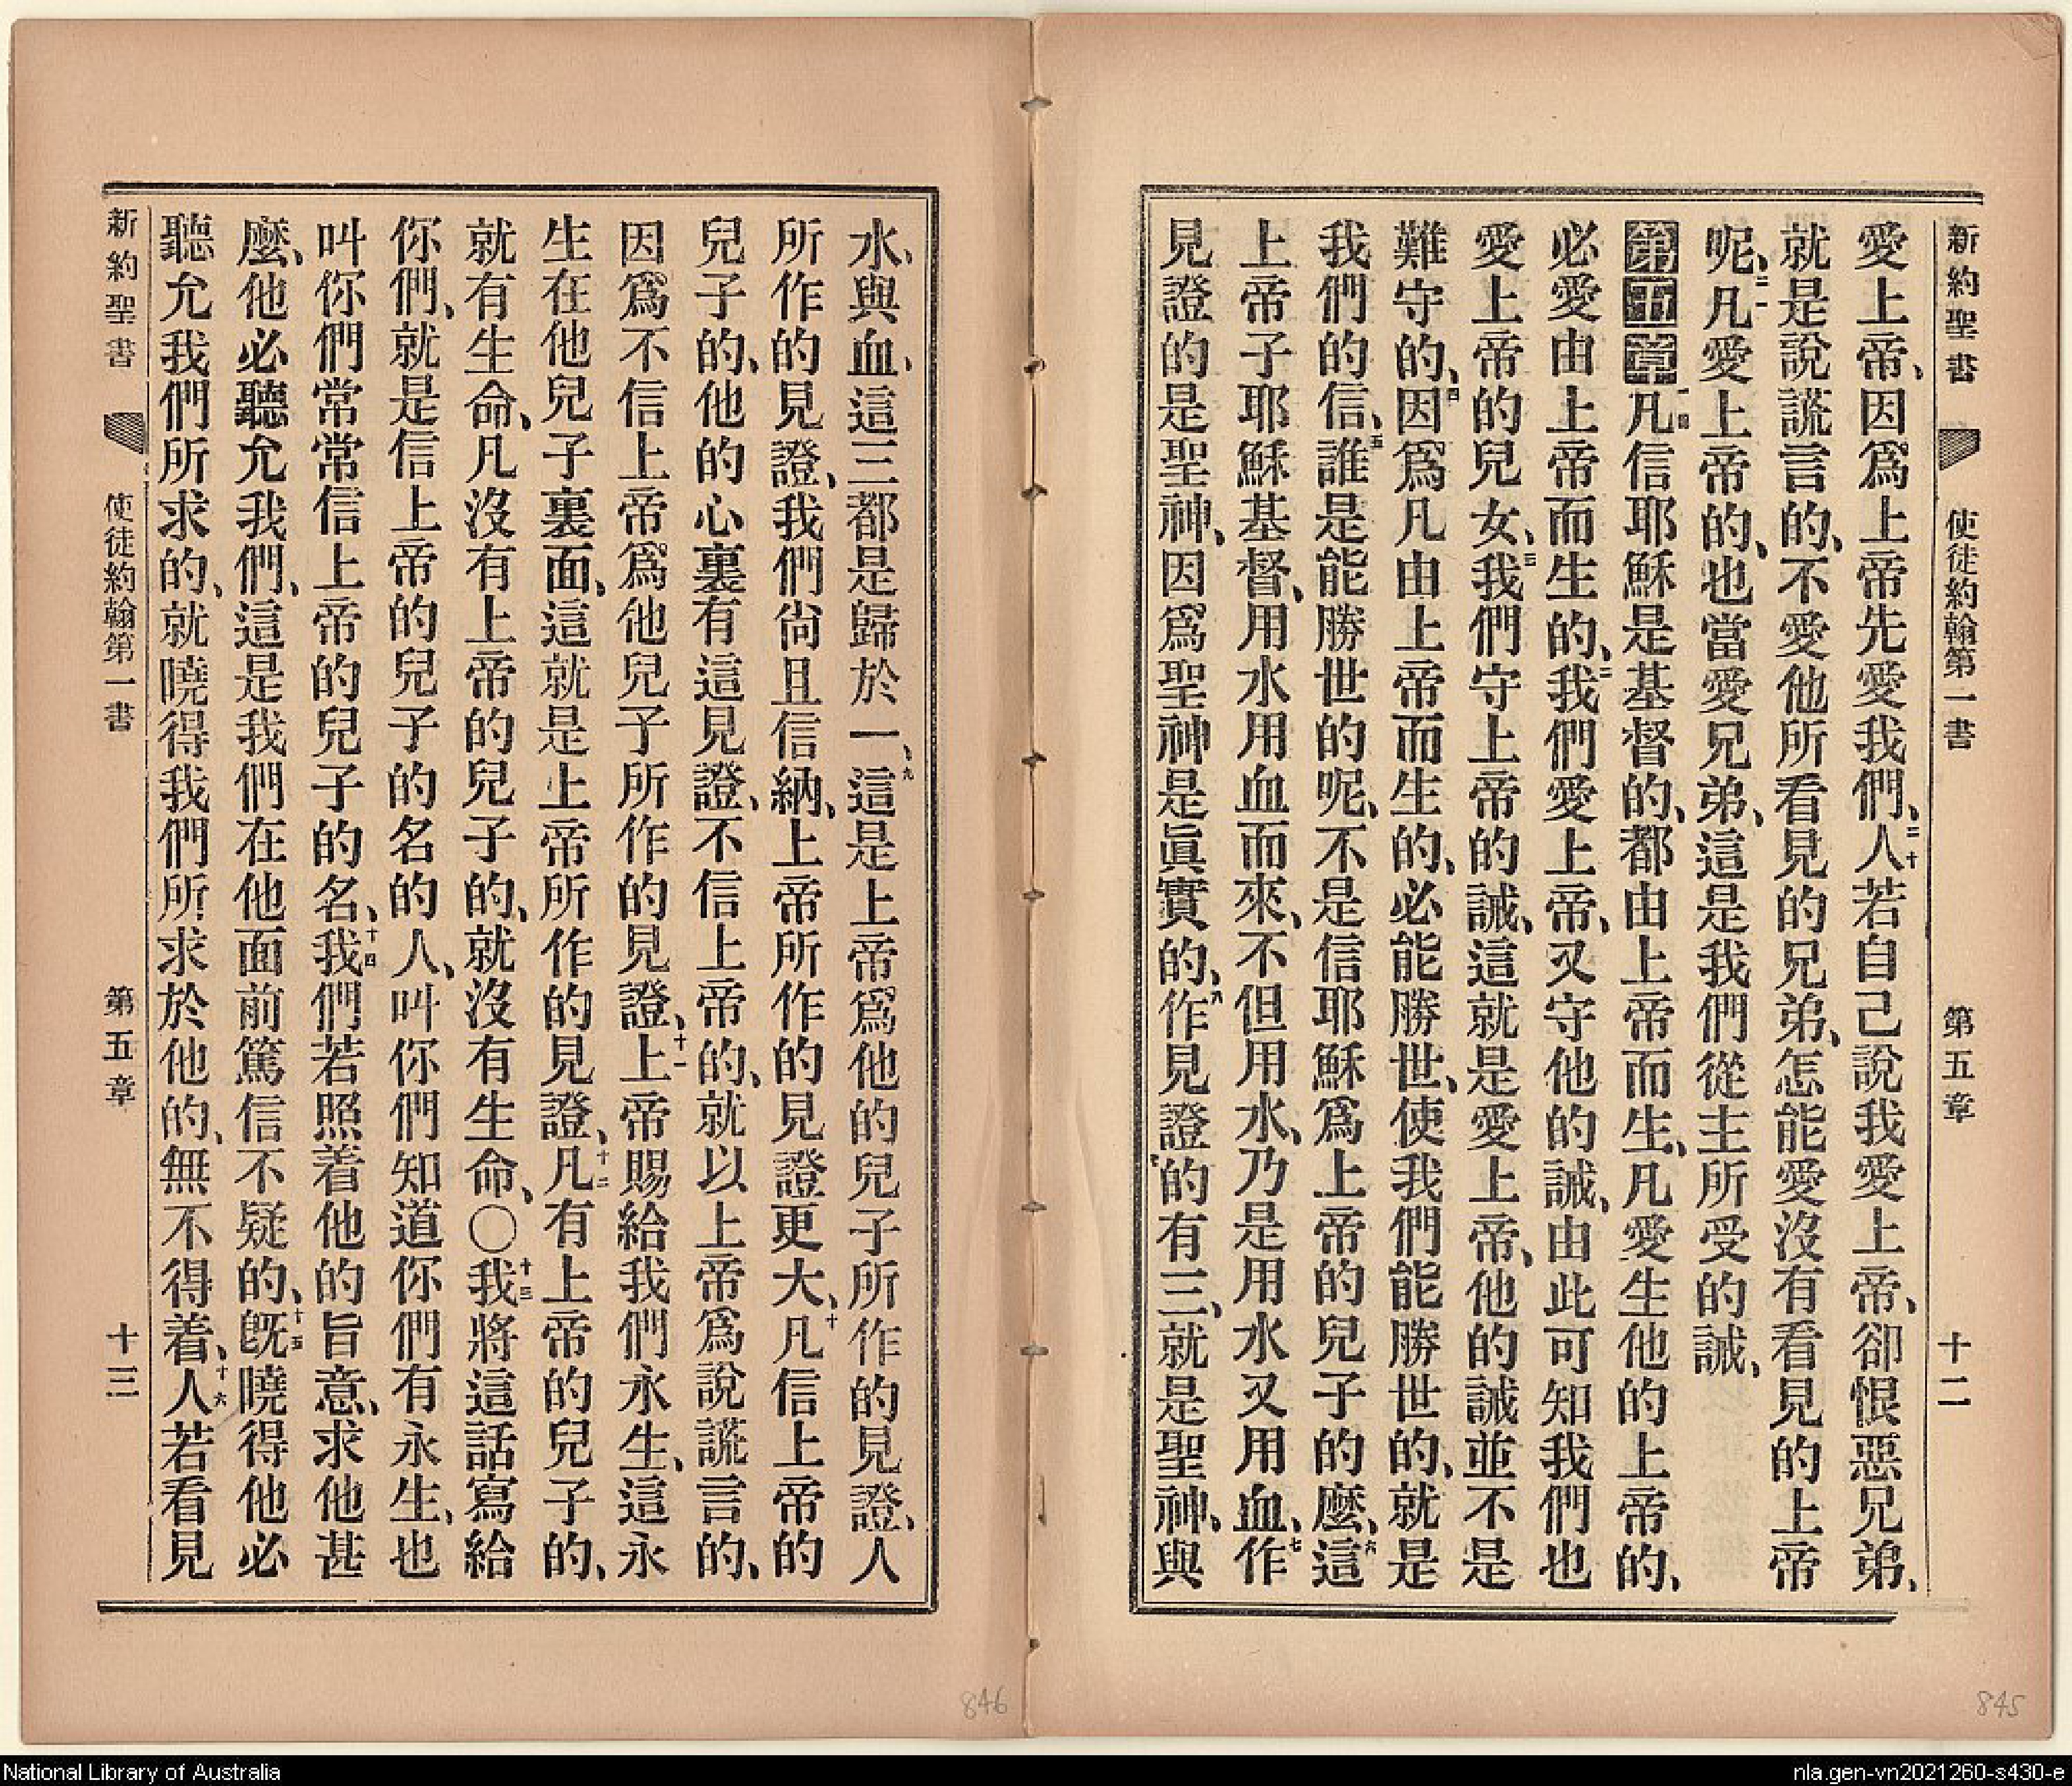 新約聖書 使徒約翰第一書 第五章 十二
愛上帝、因爲上帝先愛我們、二十人若自己說我愛上帝、卻恨惡兄弟、
就是說謊言的、不愛他所看見的兄弟、怎能愛沒有看見的上帝
呢、二一凡愛上帝的、也當愛兄弟、這是我們從主所受的誡、
第五章一凡信耶穌是基督的、都由上帝而生、凡愛生他的上帝的、
必愛由上帝而生的、二我們愛上帝、又守他的誡、由此可知我們也
愛上帝的兒女、三我們守上帝的誡、這就是愛上帝、他的誡並不是
難守的、四因爲凡由上帝而生的、必能勝世、使我們能勝世的、就是
我們的信、五誰是能勝世的呢、不是信耶穌爲上帝的兒子的麼、六這
上帝子耶穌基督、用水用血而來、不但用水、乃是用水又用血、七作
見證的是聖神、因爲聖神是眞實的、八作見證的有三、就是聖神、與
水、與血、這三都是歸於一、九這是上帝爲他的兒子所作的見證、人
所作的見證、我們尙且信納、上帝所作的見證更大、十凡信上帝的
兒子的、他的心裏有這見證、不信上帝的、就以上帝爲說謊言的、
因爲不信上帝爲他兒子所作的見證、十一上帝賜給我們永生、這永
生在他兒子裏面、這就是上帝所作的見證、十二凡有上帝的兒子的、
就有生命、凡沒有上帝的兒子的、就沒有生命、○十三我將這話寫給
你們、就是信上帝的兒子的名的人、叫你們知道你們有永生、也
叫你們常常信上帝的兒子的名、十四我們若照着他的旨意、求他甚
麼、他必聽允我們、這是我們在他面前篤信不疑的、十五旣曉得他必
聽允我們所求的、就曉得我們所求於他的、無不得着、十六人若看見
新約聖書 使徒約翰第一書 第五章 十三
846
845
National Library of Australia
nla.gen-vn2021260-s430-e